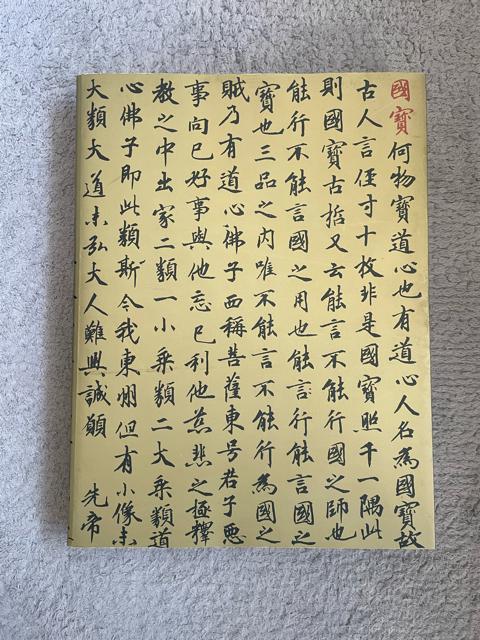 國寶何物寶道心也有道心人名為國寶故
古人言径寸十枚非是國寶照千一隅此
則國寶古哲又云能言不能行國之師也
能行不能言國之用也能言行能言國之
寶也三品之内唯不能言不能行為國之
賊乃有道心佛子西稱菩薩東号君子悪
事向己好事與他忘己利他慈悲之極釋
教之中出家二類一小乗類二大乗類道
心佛子即此類斯今我東州但有小像未
大類大道未弘大人難興誠願　先帝